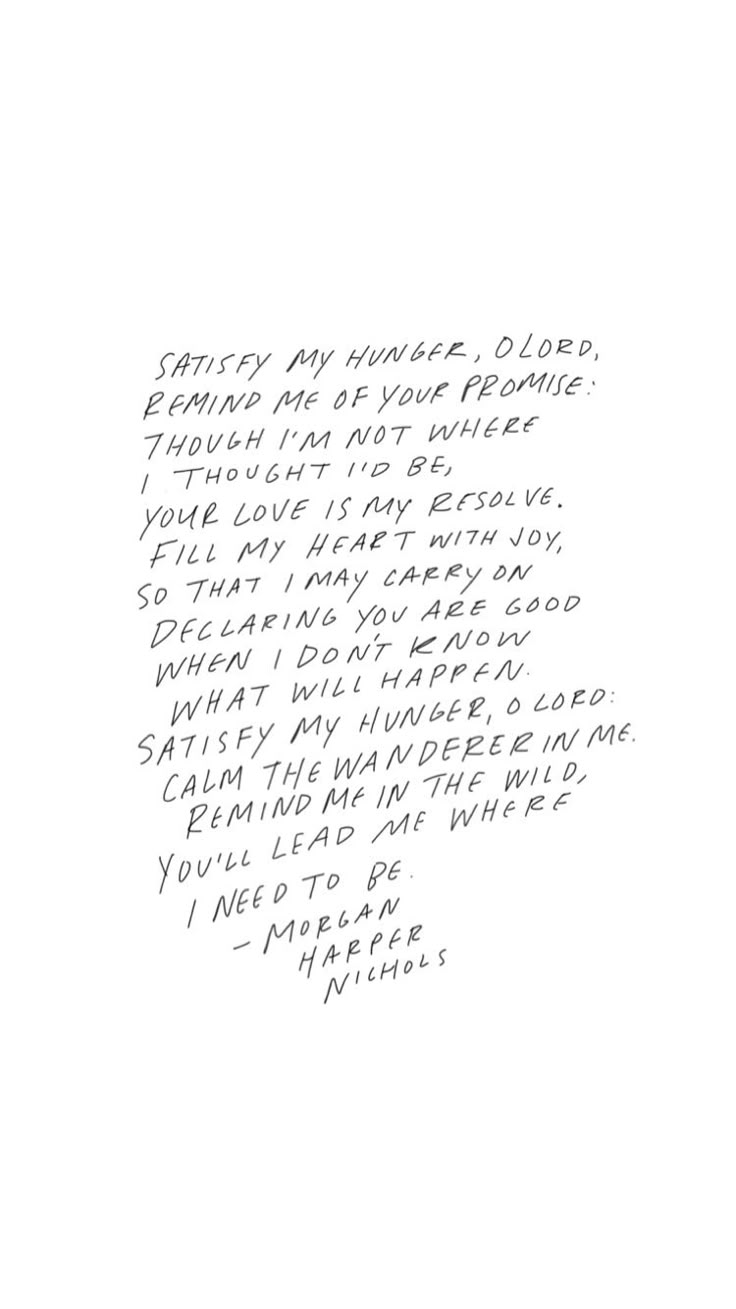 SATISFY MY HUNGER, O LORD,
REMIND ME OF YOUR PROMISE:
THOUGH I'M NOT WHERE
I THOUGHT I'D BE,
YOUR LOVE IS MY RESOLVE.
FILL MY HEART WITH JOY,
SO THAT I MAY CARRY ON
DECLARING YOU ARE GOOD
WHEN I DON'T KNOW
WHAT WILL HAPPEN.
SATISFY MY HUNGER, O LORD:
CALM THE WANDERER IN ME.
REMIND ME IN THE WILD,
YOU'LL LEAD ME WHERE
I NEED TO BE.
– MORGAN
HARPER
NICHOLS